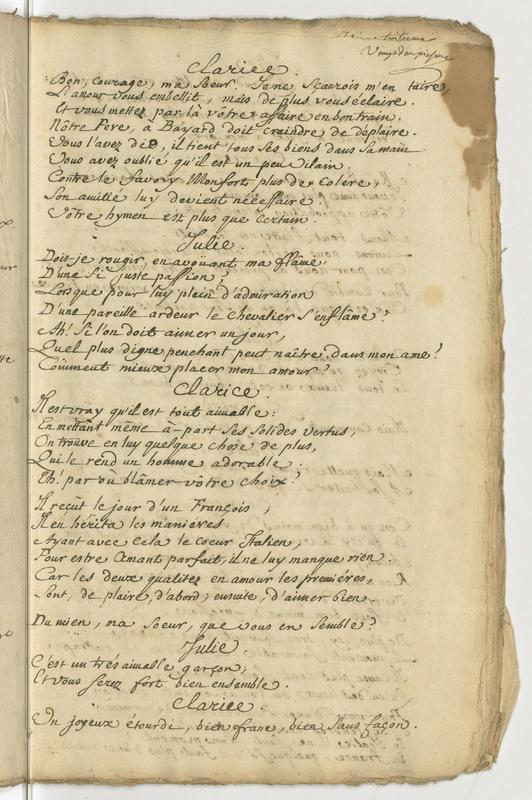 Vingt deuxiesme
Clarice.
Bon, courage, ma Soeur. Je ne Sçaurois m'en taire,
L'amour vous embellit, mais de plus vous éclaire.
Et vous mettez par là vôtre affaire en bon train.
Nôtre Fere, à Bayard doit craindre de déplaire.
Vous l'avez dit, il tient tous ses biens dans Sa main
Vous avez oublié qu'il est un peu vilain.
Contre le favory Monfort plus de colere,
Son amitié luy devient nécessaire.
Vôtre hymen est plus que certain.
Julie.
Dois-je rougir, en avoüant ma flâme,
D'une Si juste passion?
Lorsque pour luy plein d'admiration
D'une pareille ardeur le Chevalier S'enflâme?
Ah! Si l'on doit aimer un jour,
Quel plus digne penchant peut naître dans mon ame?
Comment mieux placer mon amour?
Clarice.
Il est vray qu'il est tout aimable:
En mettant même à-part Ses Solides vertus,
On trouve en luy quelque chose de plus,
Qui le rend un homme adorable.
Eh! par où blâmer vôtre choix?
Il reçut le jour d'un François,
Il en hérita les manieres:
Ayant avec cela le coeur Italien,
Pour estre Amant parfait, il ne luy manque rien.
Car les deux qualitez en amour les premiéres,
Sont, de plaire, d'abord; ensuite, d'aimer bien.
Du mien, ma Soeur, que vous en Semble?
Julie.
C'est un trés aimable garçon;
Et vous Serez fort bien ensemble.
Clarice.
Un joyeux étourdi, bien franc, bien Sans façon.